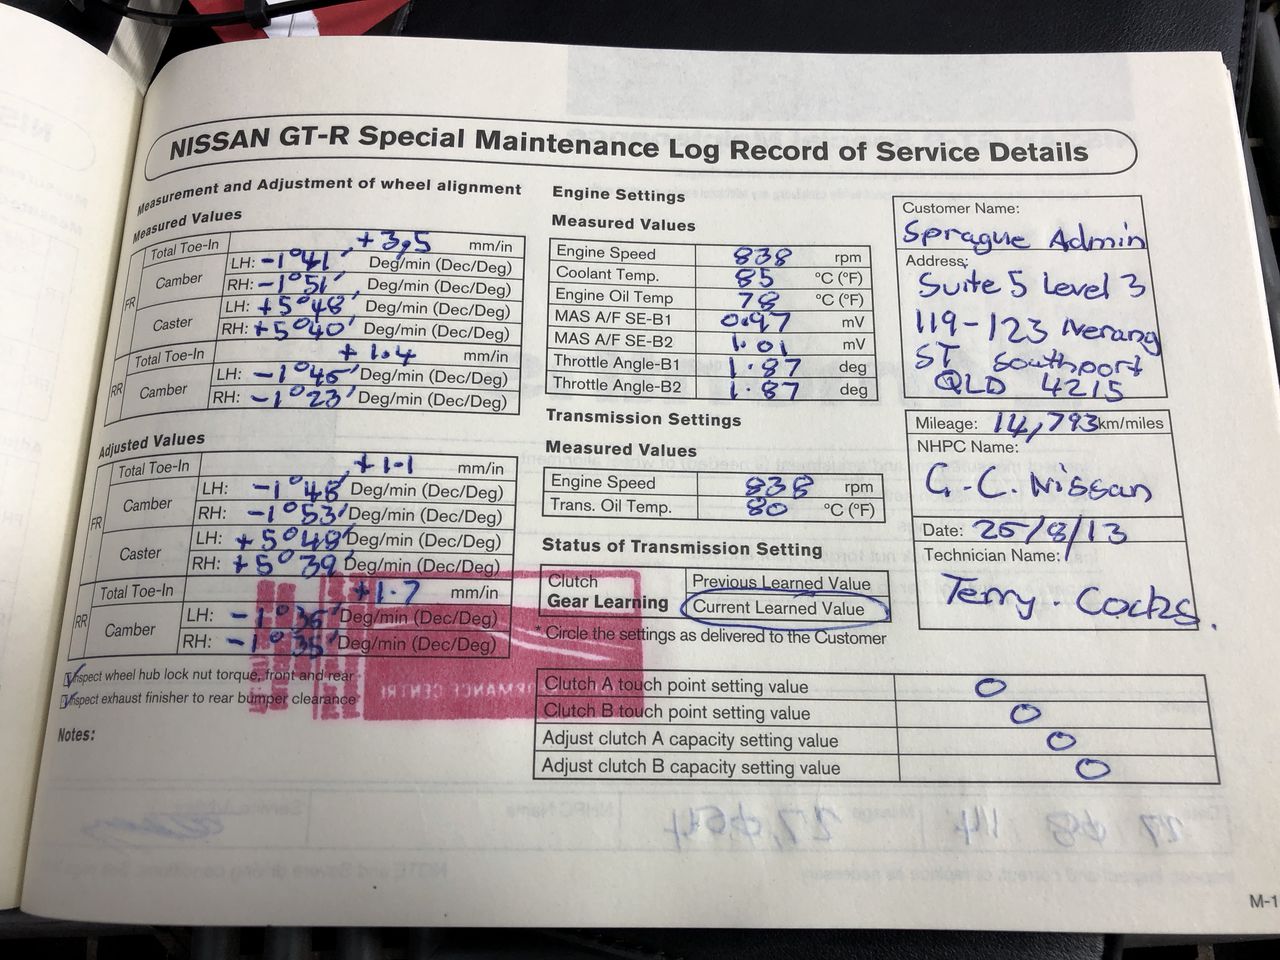 NISSAN GT-R Special Maintenance Log Record of Service Details
Measurement and Adjustment of wheel alignment
Measured Values
FR
Total Toe-In +3,5 mm/in
Camber LH: -1°41' Deg/min (Dec/Deg)
RH: -1°51' Deg/min (Dec/Deg)
Caster LH: +5°48' Deg/min (Dec/Deg)
RH: +5°40' Deg/min (Dec/Deg)
RR
Total Toe-In +1.4 mm/in
Camber LH: -1°45' Deg/min (Dec/Deg)
RH: -1°23' Deg/min (Dec/Deg)
Adjusted Values
FR
Total Toe-In +1.1 mm/in
Camber LH: -1°48' Deg/min (Dec/Deg)
RH: -1°53' Deg/min (Dec/Deg)
Caster LH: +5°49' Deg/min (Dec/Deg)
RH: +5°39' Deg/min (Dec/Deg)
RR
Total Toe-In +1.7 mm/in
Camber LH: -1°36' Deg/min (Dec/Deg)
RH: -1°35' Deg/min (Dec/Deg)
Inspect wheel hub lock nut torque, front and rear
Inspect exhaust finisher to rear bumper clearance
Notes:
Engine Settings
Measured Values
Engine Speed 838 rpm
Coolant Temp. 85 °C (°F)
Engine Oil Temp 78 °C (°F)
MAS A/F SE-B1 0.97 mV
MAS A/F SE-B2 1.01 mV
Throttle Angle-B1 1.87 deg
Throttle Angle-B2 1.87 deg
Transmission Settings
Measured Values
Engine Speed 838 rpm
Trans. Oil Temp. 80 °C (°F)
Status of Transmission Setting
Clutch Previous Learned Value
Gear Learning Current Learned Value
* Circle the settings as delivered to the Customer
Clutch A touch point setting value 0
Clutch B touch point setting value 0
Adjust clutch A capacity setting value 0
Adjust clutch B capacity setting value 0
Customer Name:
Sprague Admin
Address:
Suite 5 Level 3
119-123 Nerang
ST Southport
QLD 4215
Mileage: 14,793 km/miles
NHPC Name:
G.C. Nissan
Date: 25/8/13
Technician Name:
Terry. Cocks.
M-1